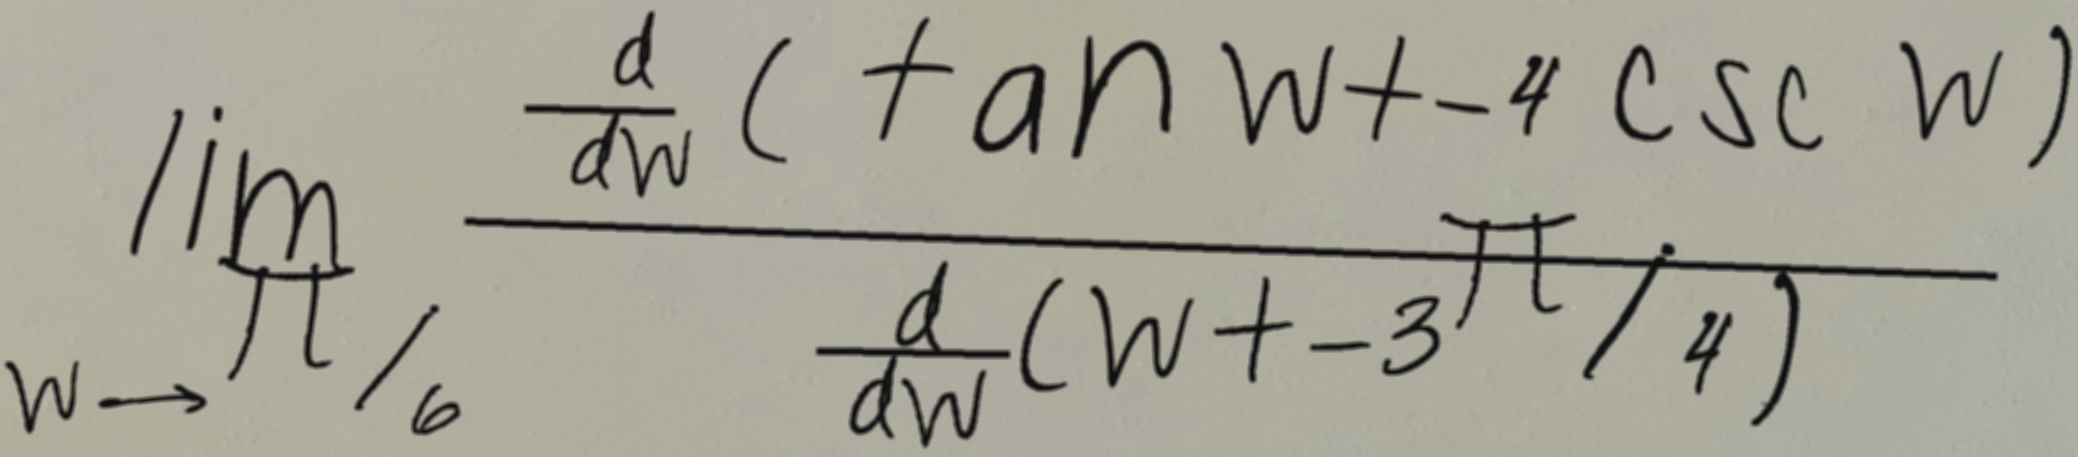 \lim_{w \to \pi/6} \frac{\frac{d}{dw}(\tan w + -4 \csc w)}{\frac{d}{dw}(w + -3\pi/4)}